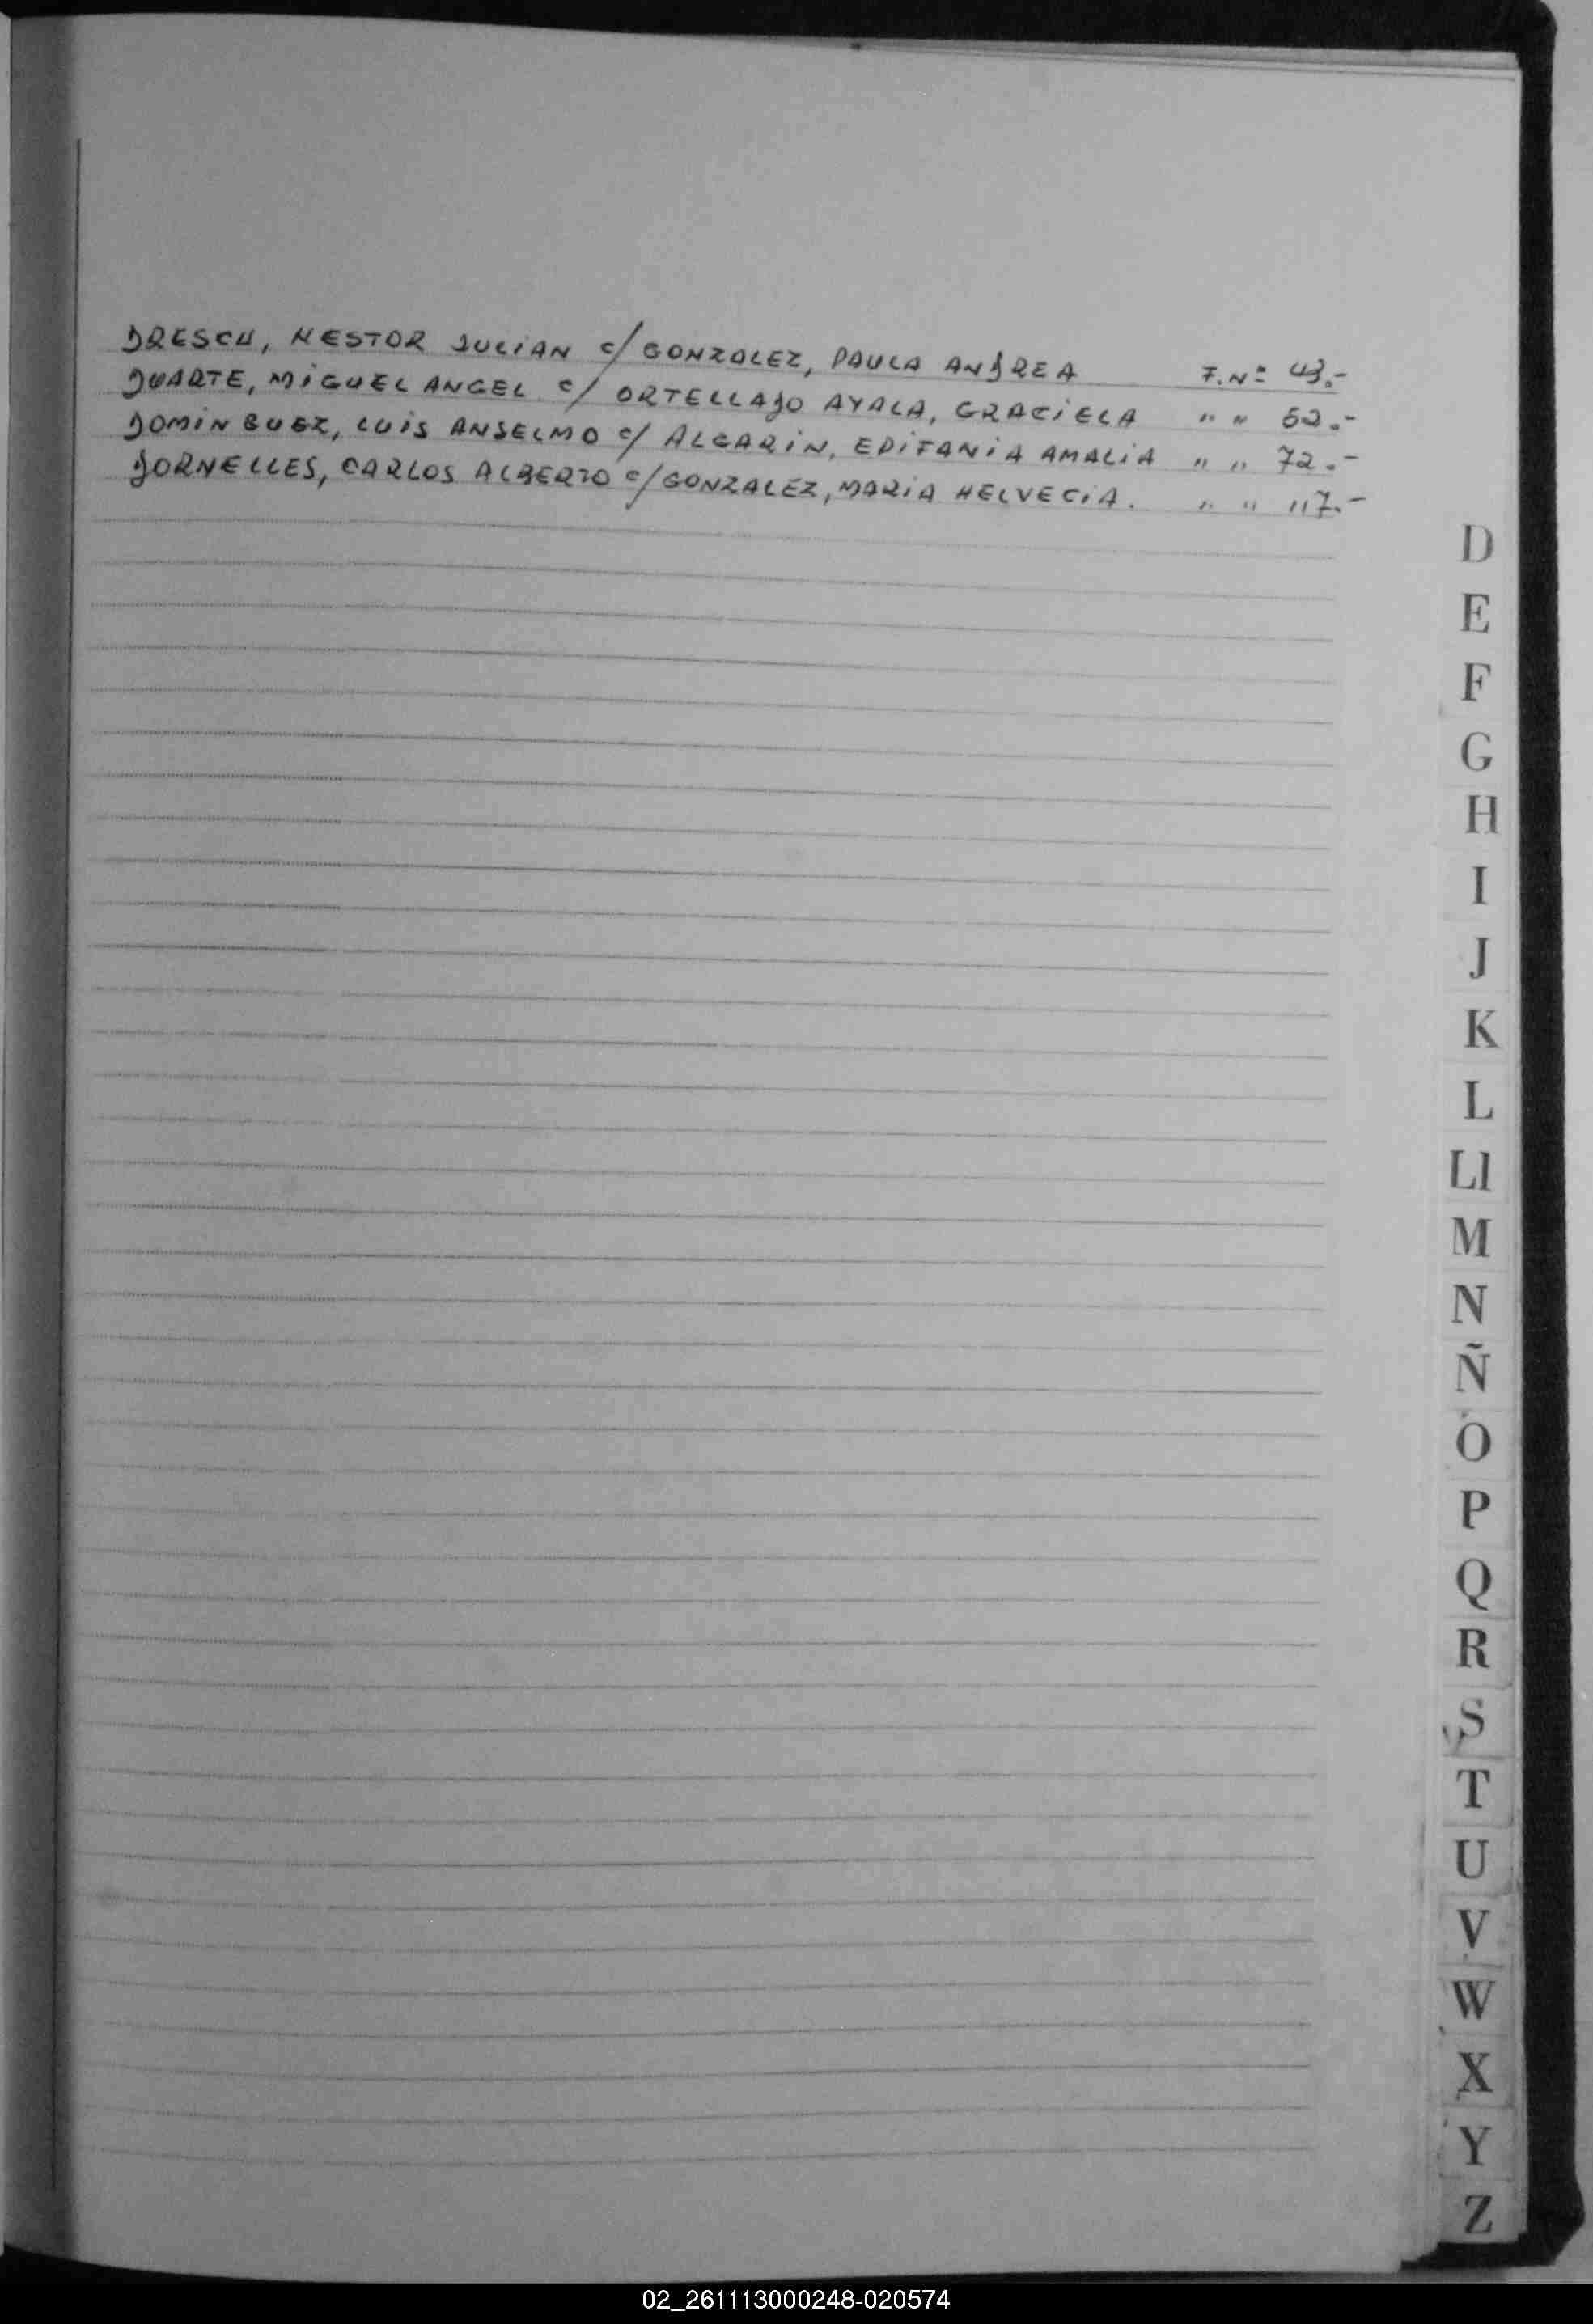 DRESCH, NESTOR JULIAN c/ GONZALEZ, PAULA ANDREA F.Nº 43.-
DUARTE, MIGUEL ANGEL c/ ORTELLADO AYALA, GRACIELA " " 52.-
DOMINGUEZ, LUIS ANSELMO c/ ALGARIN, EPIFANIA AMALIA " " 72.-
DORNELLES, CARLOS ALBERTO c/ GONZALEZ, MARIA HELVECIA. " " 117.-
D
E
F
G
H
I
J
K
L
Ll
M
N
Ñ
O
P
Q
R
S
T
U
V
W
X
Y
Z
02_261113000248-020574